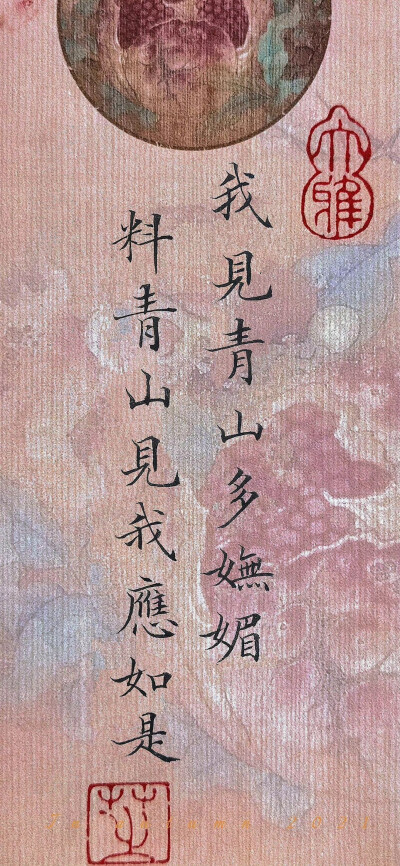 我見青山多嫵媚
料青山見我應如是
大雅